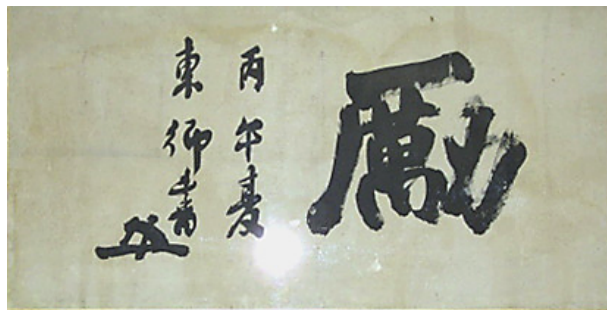 勵
丙午夏
東鄉書